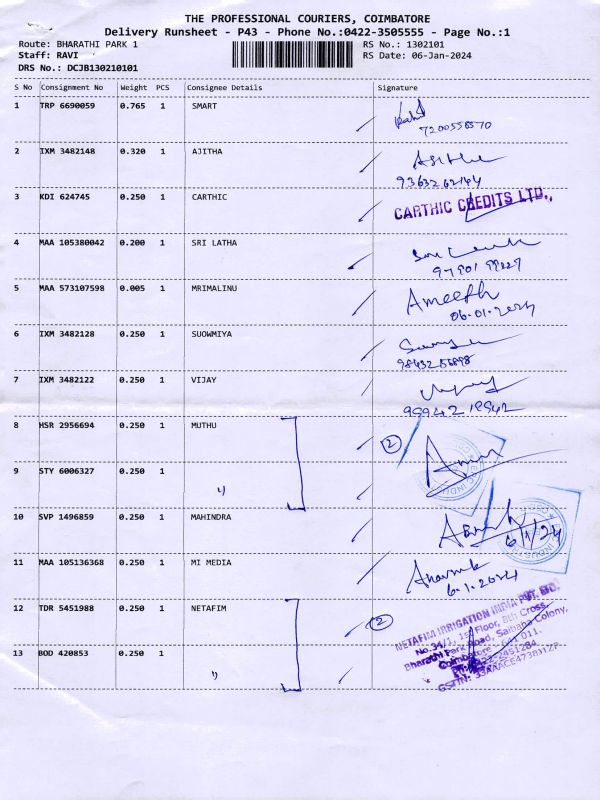 THE PROFESSIONAL COURIERS, COIMBATORE
Delivery Runsheet - P43 - Phone No.:0422-3505555 - Page No.:1
Route: BHARATHI PARK 1 RS No.: 1302101
Staff: RAVI RS Date: 06-Jan-2024
DRS No.: DCJB130210101
S No Consignment No Weight PCS Consignee Details Signature
1 TRP 6690059 0.765 1 SMART
7200558570
2 IXM 3482148 0.320 1 AJITHA
9363262144
3 KDI 624745 0.250 1 CARTHIC CARTHIC CREDITS LTD.,
4 MAA 105380042 0.200 1 SRI LATHA
5 MAA 573107598 0.005 1 MRIMALINU Ameeth
06.01.2024
6 IXM 3482128 0.250 1 SUOWMIYA
7 IXM 3482122 0.250 1 VIJAY
8 HSR 2956694 0.250 1 MUTHU 2
9 STY 6006327 0.250 1 "
10 SVP 1496859 0.250 1 MAHINDRA 6/1/24
11 MAA 105136368 0.250 1 MI MEDIA
6.1.2024
12 TDR 5451988 0.250 1 NETAFIM 2
NETAFIM IRRIGATION INDIA PVT. LTD.
No.34/1, 1st Floor, 8th Cross,
Bharathi Park Road, Saibaba Colony,
Coimbatore - 641 011.
13 BOD 420853 0.250 1 "